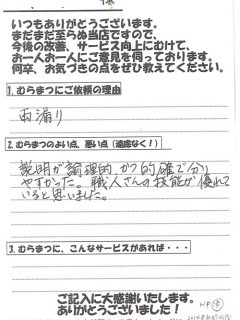 様
いつもありがとうございます。
まだまだ至らぬ当店ですので、
今後の改善、サービス向上にむけて、
お一人お一人にご意見を伺っております。
何卒、お気づきの点をぜひ教えてください。
1.むらまつにご依頼の理由
雨漏り
2.むらまつのよい点、悪い点（遠慮なく！）
説明が論理的かつ的確で分り
やすかった。職人さんの技能が優れて
いると思いました。
3.むらまつに、こんなサービスがあれば・・・
ご記入に大感謝いたします。
ありがとうございました！
HP済